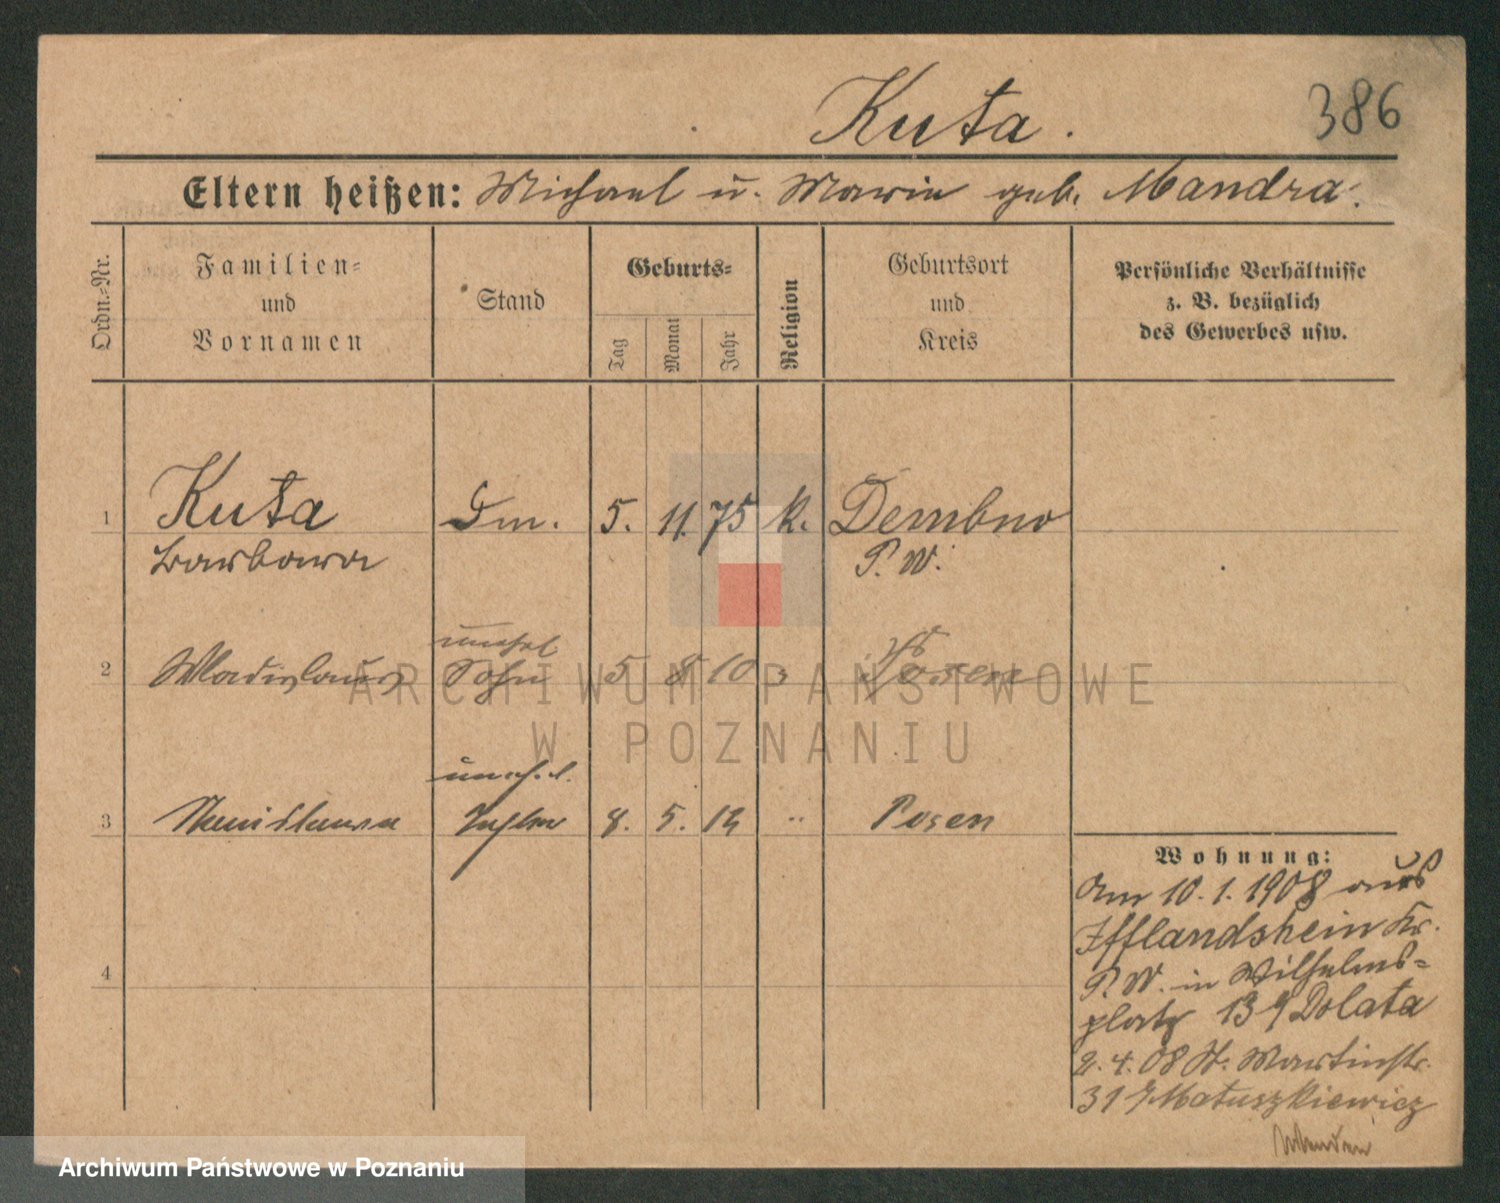 Kuta.
386
Eltern heißen: Michael u. Marie geb. Mandra.
Ordn.-Nr.
Familien-
und
Vornamen
Stand
Geburts-
Tag
Monat
Jahr
Religion
Geburtsort
und
Kreis
Persönliche Verhältnisse
z. B. bezüglich
des Gewerbes usw.
1 Kuta Dm. 5. 11. 75 k. Dembno
Barbara P. W.
unehel
2 Wladislaus Sohn 5 8 10 " Posen
unehel.
3 Stanislawa Tochter 8. 5. 12 " Posen
4
Wohnung:
Am 10.1.1908 aus
Ifflandshein Kr.
P. W. in Wilhelms-
platz 13 Dolata
2.4.08 St. Martinstr.
31 Matuszkiewicz
ARCHIWUM PAŃSTWOWE
W POZNANIU
Archiwum Państwowe w Poznaniu